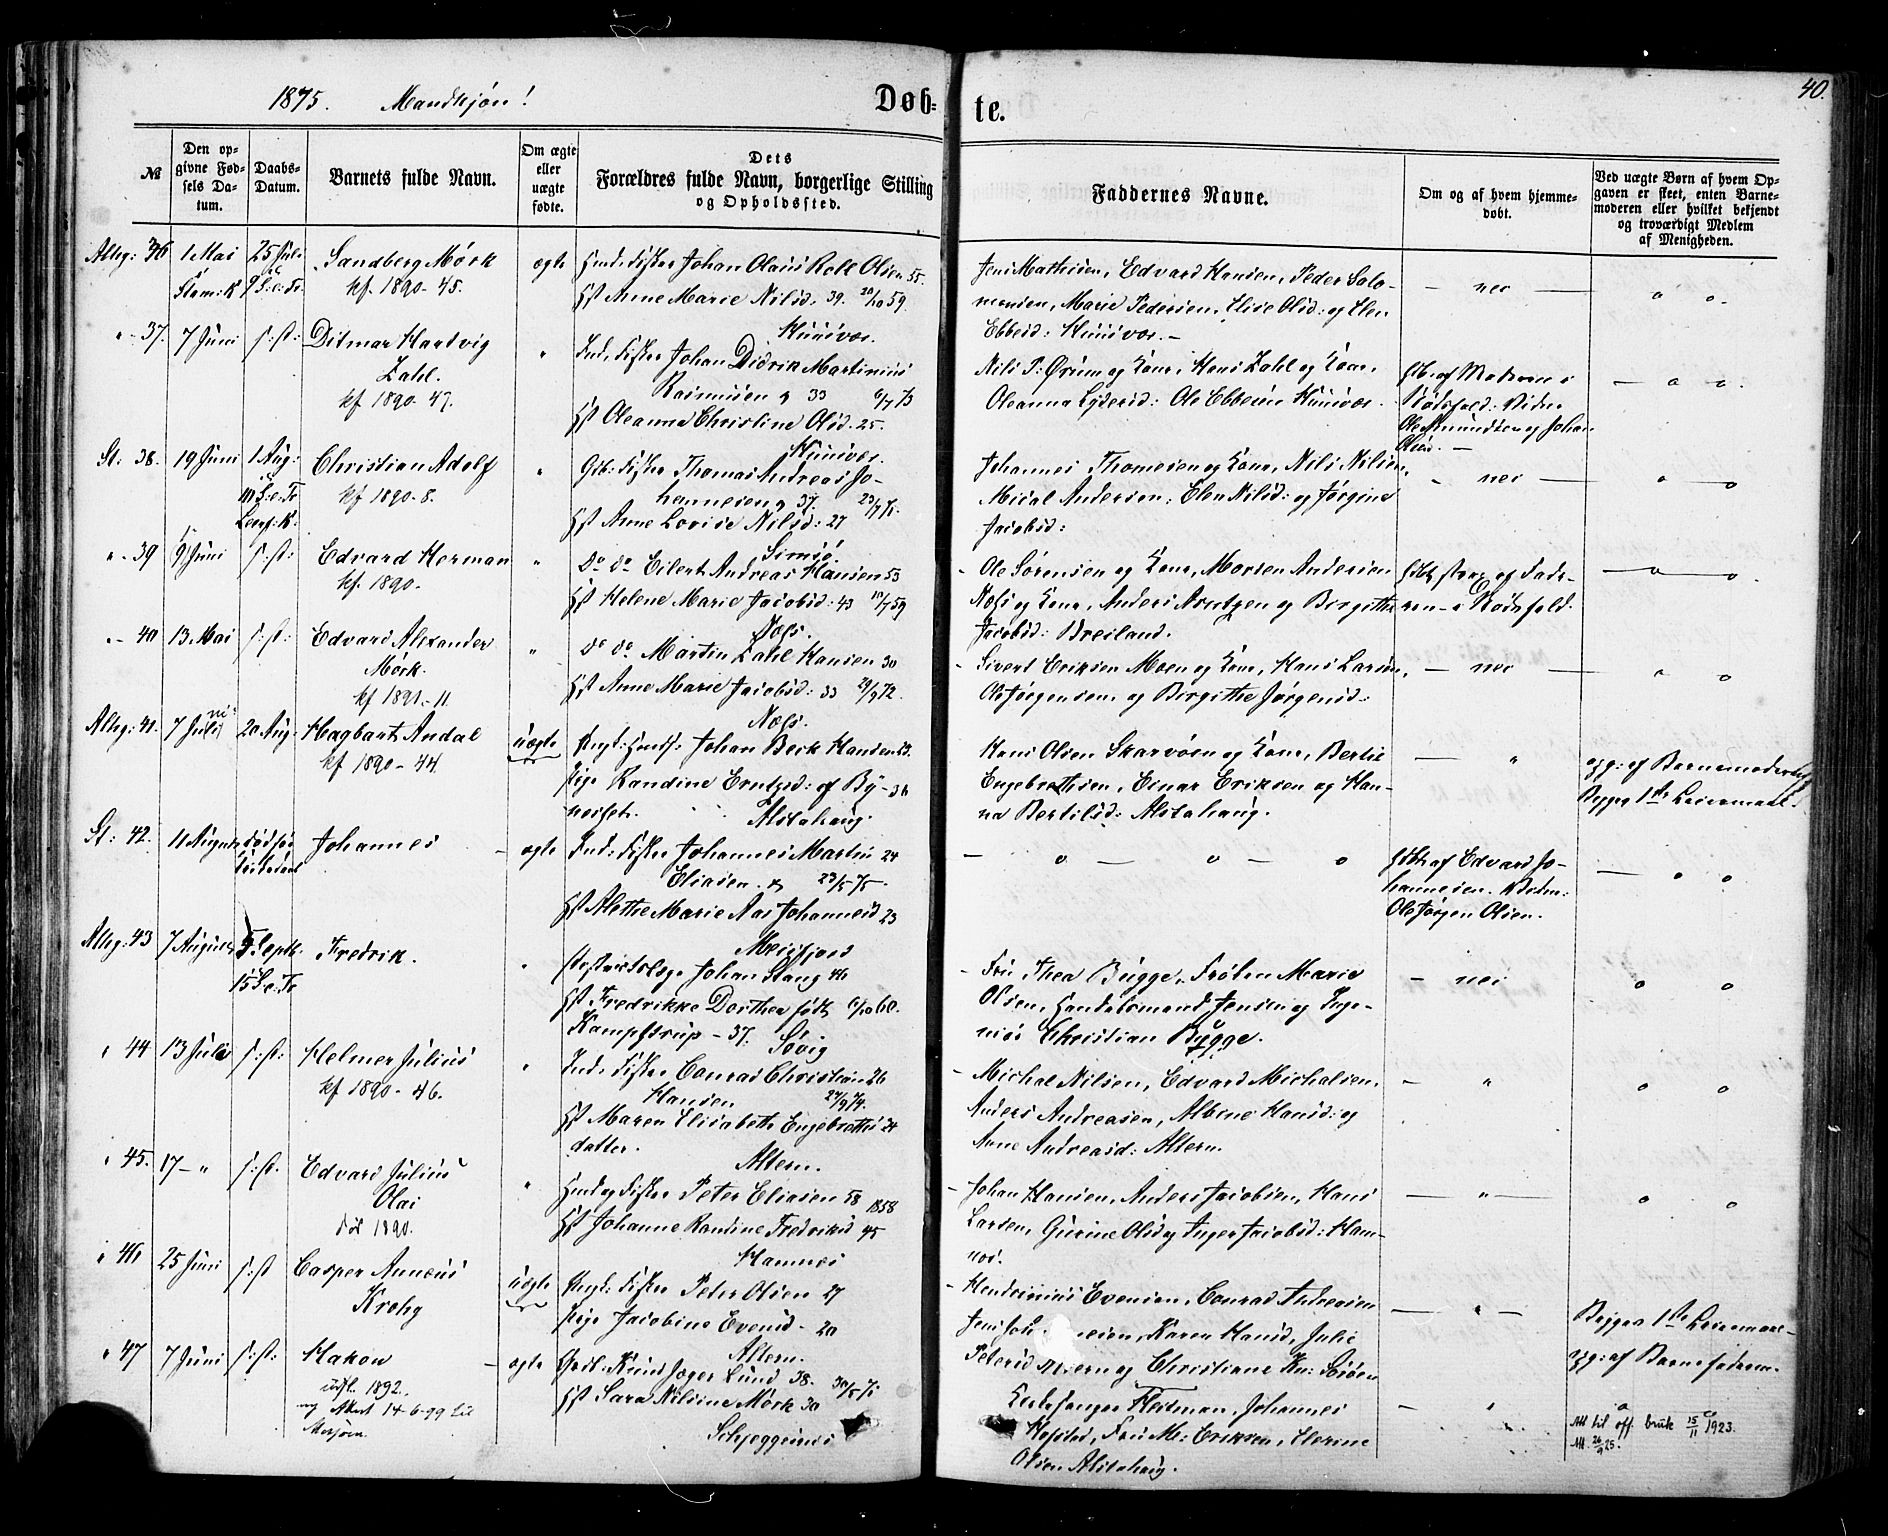 1875. Mandkjøn!
Døb-
te.
40.
№
Den op-
givne Fød-
sels Da-
tum.
Daabs-
Datum.
Barnets fulde Navn.
Om ægte
eller
uægte
fødte.
Dets
Forældres fulde Navn, borgerlige Stilling
og Opholdssted.
Faddernes Navne.
Om og af hvem hjemme-
døbt.
Ved uægte Børn af hvem Op-
gaven er skeet, enten Barne-
moderen eller hvilket bekjendt
og troværdigt Medlem
af Menigheden.
Alhg: 36
1 Mai
25 Juli
9 S: e: Tr
Sandberg Mørk
kf. 1890-45.
ægte
Fisker Johan Olaus Role Olsen 55.
Anne Marie Nilsd. 39. 20/10 59.
Husvær.
Jens Mathisen, Edvard Hansen, Peder Salo-
monsen, Marie Pedersen, Elise Olsd: og Elen
Ebbesd: Husvær.-
- nei -
o o.
" 37.
7 Juni
s: st:
Ditmar Hartvig
Zahl.
kf 1890. 47.
"
Ind. Fisker Johan Didrik Martinius
Rasmusen 33
Oleanna Christine Olsd. 25.
Husvær.
Nils P: Ørum og Kone, Hans Zahl og Kone,
Oleanna Lydersd: Ole Ebbesen Husvær.
Ole Amundsen og Johan
Olsen.-
- o o.
St: 38.
19 Juni
1 Aug:
10 S: e: Tr
Christian Adolf
kf 1890-8.
"
Fisker Thomas Andreas Jo-
hannesen 37. 23/7 75.
Anne Lovise Nilsd: 27
Johannes Thomesen og Kone, Nils Nilsen,
Micial Andersen, Elen Nilsd: og Jørgine
Jacobsd:
" nei -
o o
" 39
9 Juni
s: st:
Edvard Herman
kf. 1890.
"
Do do Eilert Andreas Hansen 53
Helene Marie Jacobsd: 43 10/7 59
Næs.
- Ole Sørensen og Kone, Morten Andersen
Næs og Kone, Anders Arntzen og Birgithe
Jacobsd: Breiland.
- o o.
" 40
13 Mai
s: st:
Edvard Alexander
Mørk.
kf 1891-11.
"
Do do Martin Zahl Hansen 30
Anne Marie Jacobsd: 33 29/9 72.
Næs.
- Sivert Eriksen Moen og Kone, Hans Larsen,
Ole Jørgensen, og Birgithe Jørgensd:
- nei -
o o
Alhg: 41.
7 Juli
20 Aug.
Hagbart Andal
kf 1890-44.
uægte
Johan Beck Hansen
Pige Randine Erntzd: af By-
nesset.
Alstahaug.
Hans Olsen Skarvøen og Kone, Bertil
Engebrethsen, Einar Eriksen og Han-
na Bertilsd: Alstahaug.
- "
opg: af Barnemoderen
Begges 1ste Leiermaal.
St: 42.
11 August
Johannes
- ægte
Ind: Fisker Johannes Martin 24
Eliasen. 23/5 75.
Alethe Marie Aas Johannesd 23
Meisfjord
- o - o - o
hdbt af Edvard Jo-
hannesen. Vidn:
Ole Jørgen Olsen.
- o o
Alhg: 43
7 August
5 Septb:
15 S: e: Tr
Fredrik.
"
Distriktslæge Johan Stang 46
Fredrikke Dorthea født 6/10 60.
Kampstrup - 37. Søvig
- Fru Thea Bugge, Frøken Marie
Olsen, Handelsmand Jensen og Inge-
niør Christian Bugge.
- nei
o o
" 44
13 Juli
s: st:
Helmer Julius
kf 1890-46.
"
Ind. Fisker Conrad Christian 26
Hansen 27/9 74.
Maren Elisabeth Engebreths 24
datter.
Altern.
- Michal Nilsen, Edvard Michalsen,
Anders Andreasen, Albine Hansd: og
Anne Andreasd: Altern.
- "
o o
" 45.
17 - "
s: st.
Edvard Julius
Olai
død 1890.
"
Fisker Peter Eliasen 58 1858
Johanne Randine Fredriksd 45
Hamnes
- Johan Hansen, Anders Jacobsen, Hans
Larsen, Gurine Olsd og Inger Jacobsd: Ham-
nes.
- " -
o o
" 46
25 Juni
s: st
Casper Anneus
Krohg
uægte
Fisker Peter Olsen 27
Pige Jacobine Evensd - 20
Altern.
- Hendrinius Evensen, Conrad Andreasen
Karen Hansd, Julie
Petersd Altern og Christiane Kn: Sørøen
- " -
Begges 1ste Leiermaal-
opg: af Barnefaderen.
" 47
7 Juni
s: st:
Hakon
utfl. 1892.
og Attest 14-6-99 til
Mosjøen.
- ægte
Knud Jæger Lund 38. 30/5 75
Sara Nilsine Mørk 30
Skjeggesnes
Kirkesanger Fleitman, Johannes
Hofstad, Fru M: Eriksen, Elerine
Olsen Alstahaug.
- "
o o
Att til off. bruk 15/11 1923.
Att. 26/9 25.